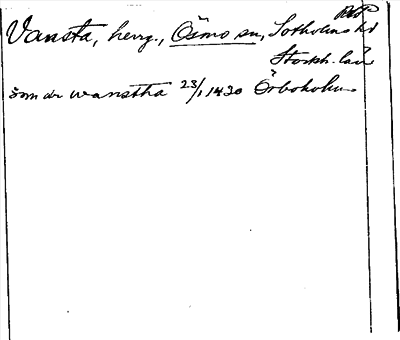 Vansta, herrg., Ösmo sn, Sotholms hd
Stockh. län
i wanstha 23/1 1420 Örboholm